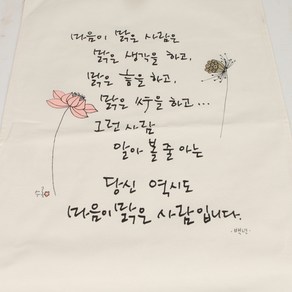 마음이 맑은 사람은
맑은 생각을 하고,
맑은 하고,
맑은 하고...
그런 사람
알아 볼 줄 아는
당신 역시도
마음이 맑은 사람입니다.